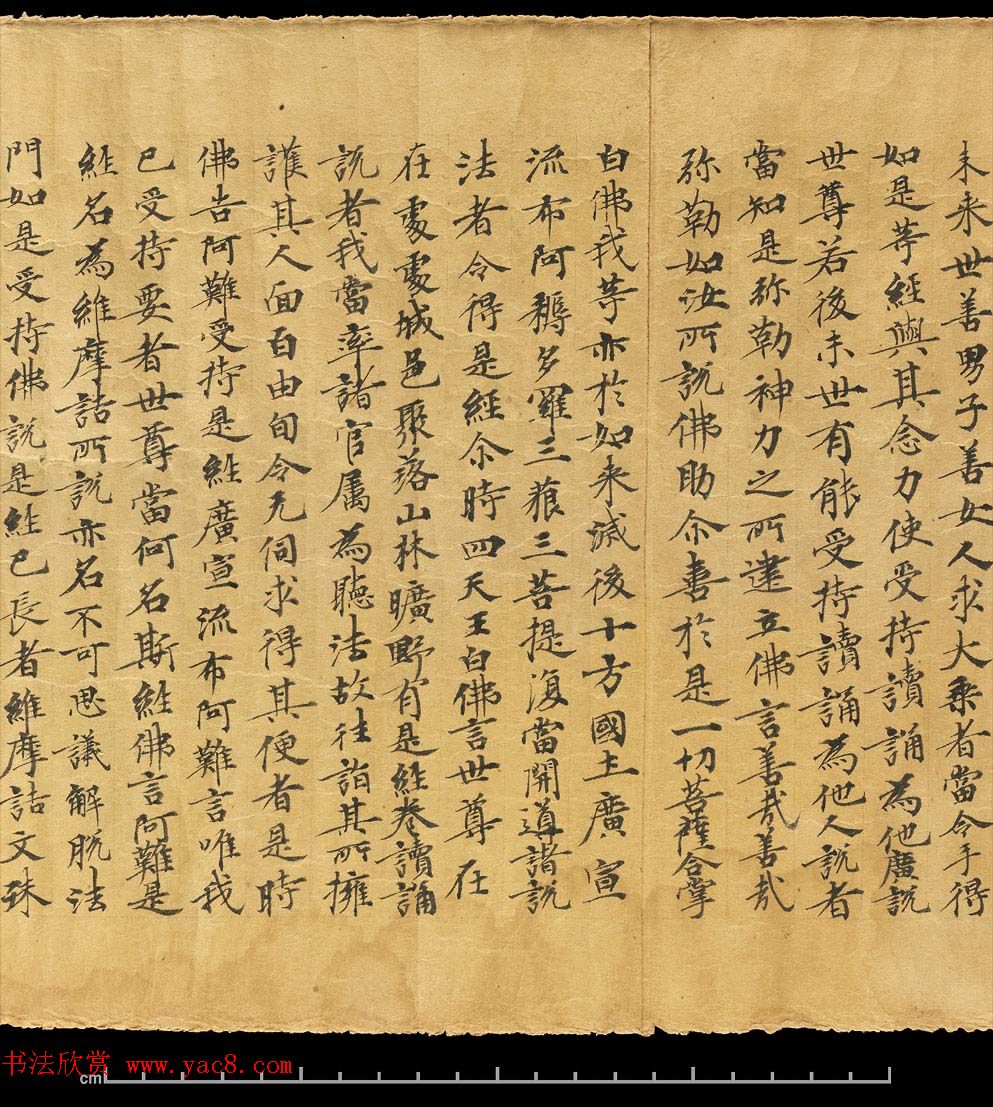 未来世善男子善女人求大乗者當令手得
如是等經與其念力使受持讀誦為他廣說
世尊若後末世有能受持讀誦為他人說者
當知是弥勒神力之所建立佛言善哉善哉
弥勒如汝所說佛助尒喜於是一切菩薩合掌
白佛我等亦於如来滅後十方國土廣宣
流布阿耨多羅三藐三菩提復當開導諸說
法者令得是經尒時四天王白佛言世尊在
在處處城邑聚落山林曠野有是經卷讀誦
說者我當率諸官属為聽法故往詣其所擁
護其人面百由旬令无伺求得其便者是時
佛告阿難受持是經廣宣流布阿難言唯我
已受持要者世尊當何名斯經佛言阿難是
經名為維摩詰所說亦名不可思議解脫法
門如是受持佛說是經已長者維摩詰文殊
书法欣赏 www.yac8.com
cm